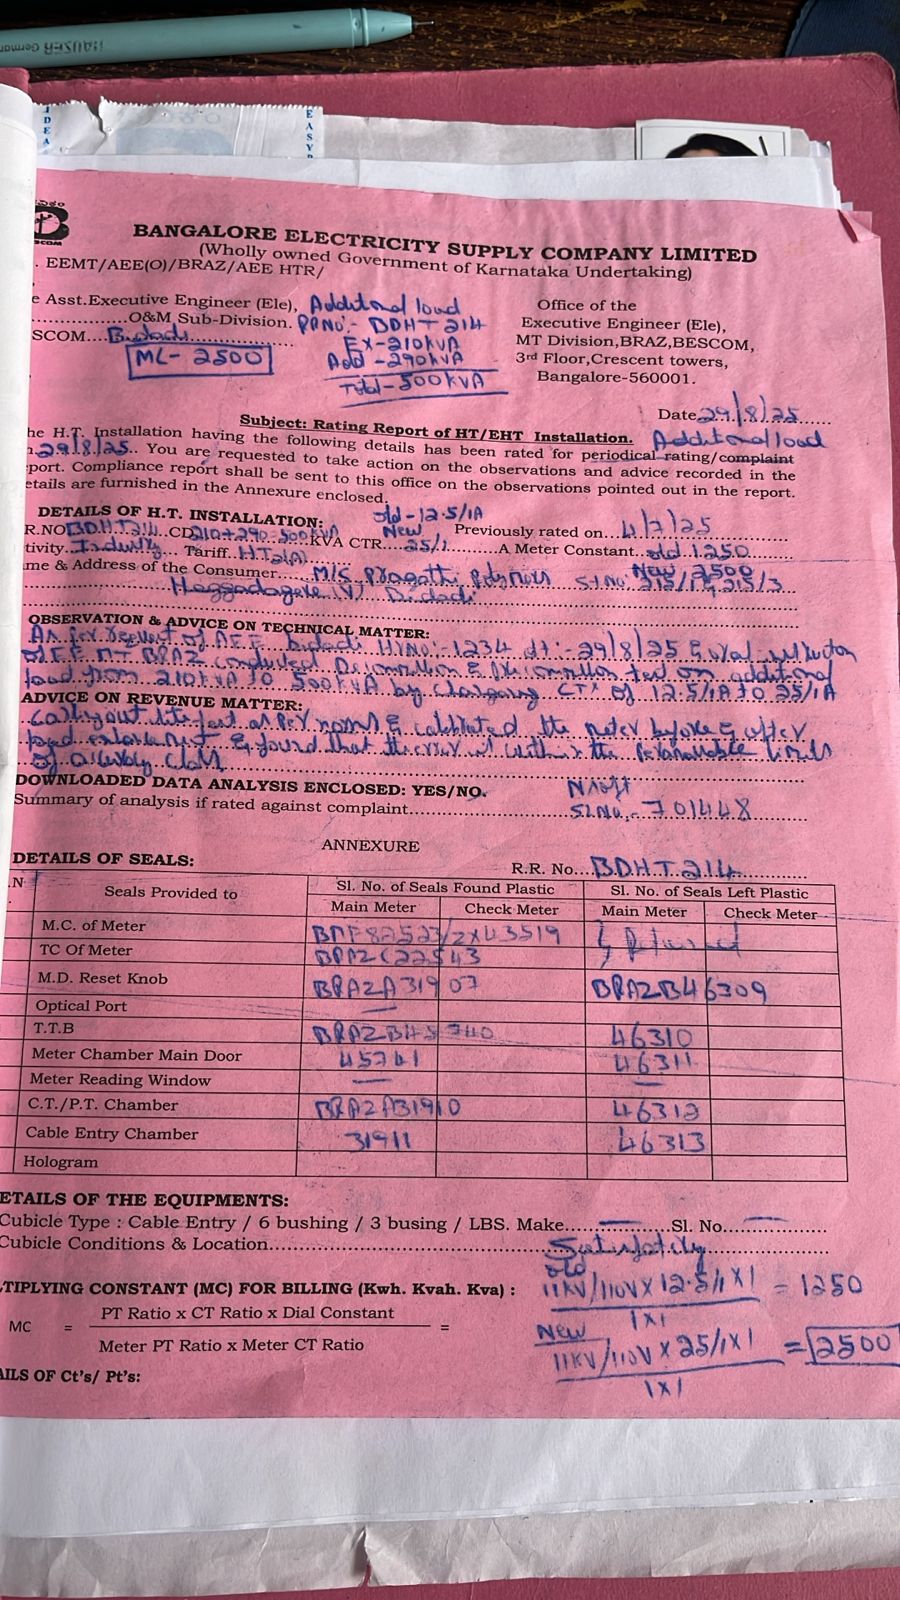 HAUSER German
IDEA
EASY
BESCOM
BANGALORE ELECTRICITY SUPPLY COMPANY LIMITED
(Wholly owned Government of Karnataka Undertaking)
. EEMT/AEE(O)/BRAZ/AEE HTR/
e Asst.Executive Engineer (Ele),
...............O&M Sub-Division.
SCOM....Bidadi
ML- 2500
Additional load
RRNO:- BDHT 214
Ex-210kVA
Add -290kVA
Total-500kVA
Office of the
Executive Engineer (Ele),
MT Division,BRAZ,BESCOM,
3rd Floor,Crescent towers,
Bangalore-560001.
Date 29/8/25
Subject: Rating Report of HT/EHT Installation. Additional load
he H.T. Installation having the following details has been rated for periodical rating/complaint
n 29/8/25.. You are requested to take action on the observations and advice recorded in the
port. Compliance report shall be sent to this office on the observations pointed out in the report.
etails are furnished in the Annexure enclosed.
DETAILS OF H.T. INSTALLATION: old-12.5/1A
R.NO BDHT214 CD 210+290=500kVA KVA CTR New 25/1 A Previously rated on 4/7/25
tivity. Industry Tariff. HT2(A) Meter Constant old 1250
New 2500
me & Address of the Consumer M/s Pragathi Polymers Sl.No:
Heggadagere (V) Bidadi
OBSERVATION & ADVICE ON TECHNICAL MATTER:
As per request of AEE Bidadi No:-1234 dt:-29/8/25 &
of EE MT BRAZ conducted on additional
load from 210kVA to 500kVA by changing CT's of 12.5/1A to 25/1A
ADVICE ON REVENUE MATTER:
as per norms & calibrated the meter before & after
load & found that the error is within the limits
of accuracy class
DOWNLOADED DATA ANALYSIS ENCLOSED: YES/NO.
Summary of analysis if rated against complaint
Sl.No.-701448
ANNEXURE
DETAILS OF SEALS:
R.R. No. BDHT.214
.N Seals Provided to Sl. No. of Seals Found Plastic Sl. No. of Seals Left Plastic
Main Meter Check Meter Main Meter Check Meter
M.C. of Meter
TC Of Meter BRAZC22543
M.D. Reset Knob BRAZA31907 BRAZB46309
Optical Port —
T.T.B BRAZB45740 46310
Meter Chamber Main Door 45741 46311
Meter Reading Window — —
C.T./P.T. Chamber BRAZA31910 46312
Cable Entry Chamber 31911 46313
Hologram
ETAILS OF THE EQUIPMENTS:
Cubicle Type : Cable Entry / 6 bushing / 3 busing / LBS. Make — Sl. No —
Cubicle Conditions & Location
TIPLYING CONSTANT (MC) FOR BILLING (Kwh. Kvah. Kva) :
MC = PT Ratio x CT Ratio x Dial Constant =
Meter PT Ratio x Meter CT Ratio
old
11KV/110V X 12.5/1 X 1 = 1250
1X1
New
11KV/110V X 25/1 X 1 = 2500
1X1
AILS OF Ct's/ Pt's: